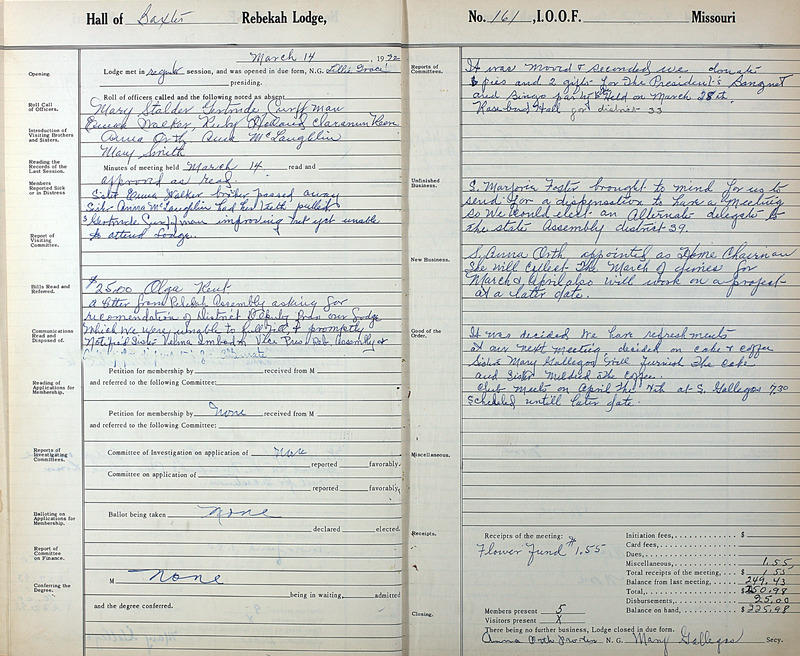 Hall of Baxter Rebekah Lodge,
March 14, 19
Opening.
Lodge met in regular session, and was opened in due form, N.G. Lillie
presiding.
Roll Call of Officers.
Roll of officers called and the following noted as absent
Mary Stalder Gertrude
Emma Walker, Ruby
Introduction of Visiting Brothers and Sisters.
Anna Orth Anna McLaughlin
Mary Smith
Reading the Records of the Last Session.
Minutes of meeting held March 14 read and
approved as read
Members Reported Sick or in Distress
Sister Emma Walker brother passed away
Sister Anna McLaughlin had her teeth pulled
Gertrude improving but yet unable
Report of Visiting Committee.
to attend Lodge.
Bills Read and Referred.
$25.00 Olga Kent
A letter from Rebekah Assembly asking for
recomendation of District Deputy from our Lodge
Communications Read and Disposed of.
Which we were unable to full fill & promptly
Notified Sister Velma Vice Pres Reb. Assembly of
Petition for membership by received from M
Reading of Applications for Membership.
and referred to the following Committee:
Petition for membership by None received from M
and referred to the following Committee:
Reports of Investigating Committees.
Committee of Investigation on application of None
reported favorably.
Committee on application of
reported favorably.
Balloting on Applications for Membership.
Ballot being taken None
declared elected.
Report of Committee on Finance.
Conferring the Degree.
M None
being in waiting, admitted
and the degree conferred.
No. 161, I.O.O.F. Missouri
Reports of Committees.
It was moved & seconded we donate
pies and 2 gifts for The President's Banquet
and Bingo party Held on March 28th.
Hall for district 33
Unfinished Business.
S. Marjorie Foster brought to mind for us to
send for a dispensation to have a meeting
so we could elect an Alternate delegate to
the state Assembly district 39.
New Business.
S. Anna Orth appointed as Home Chairman
She will collect The March of dimes for
March & April also will work on a project
at a later date.
Good of the Order.
It was decided we have refreshments
at our next meeting decided on cake & coffee
Sister Mary Gallegos will furnish The cake
and Sister Mildred The coffee.
Club meets on April The 4th at S. Gallegos 7:30
Scheduled untill later date.
Miscellaneous.
Receipts.
Receipts of the meeting:
Flower Fund $1.55
Initiation fees, $
Card fees,
Dues,
Miscellaneous, 1.55
Total receipts of the meeting, $ 1.55
Balance from last meeting, 249.43
Total, $250.98
Disbursements, 25.00
Balance on hand, $225.98
Closing.
Members present 5
Visitors present X
There being no further business, Lodge closed in due form.
Anna Orth N. G. Mary Gallegos Secy.